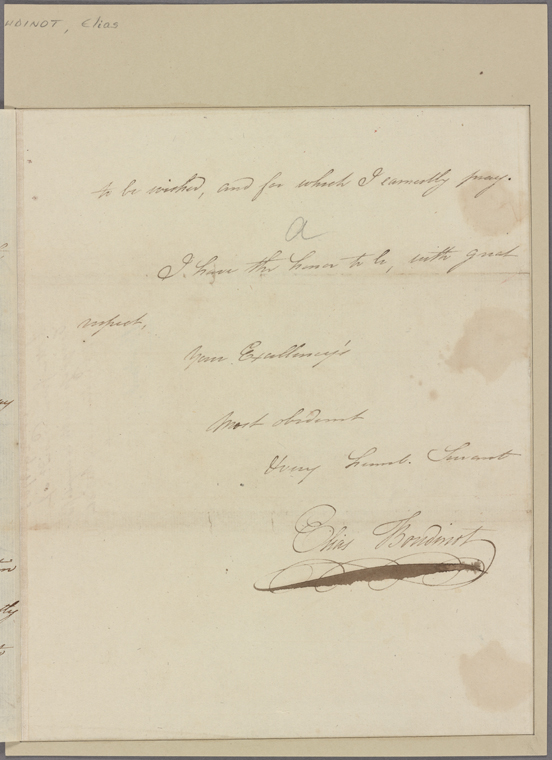 OUDINOT, Elias
to be wished, and for which I earnestly pray.
a
I have the honor to be, with great
respect,
Your Excellency's
Most obedient
& very humb. Servant
Elias Boudinot